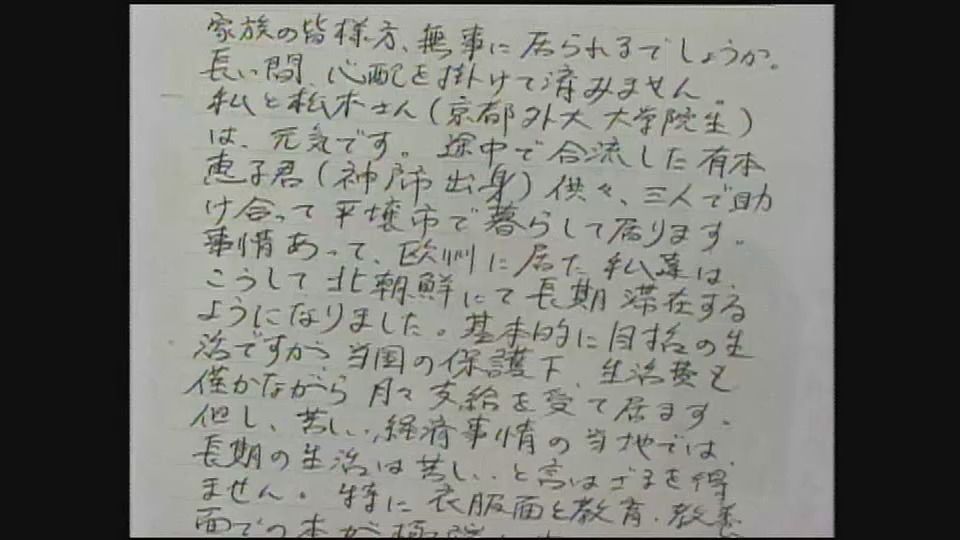 家族の皆様方、無事に居られるでしょうか。
長い間、心配を掛けて済みません。
私と松木さん(京都外大 大学院生)
は、元気です。途中で合流した有本
恵子君(神戸市出身)供々、三人で助
け合って平壌市で暮らして居ります。
事情あって、欧州に居た私達は、
こうして北朝鮮にて長期滞在する
ようになりました。基本的に自活の生
活ですが、当国の保護下、生活費も
僅かながら月々支給を受て居ます。
但し、苦しい経済事情の当地では、
長期の生活は苦しいと言はざるを得
ません。特に衣服面と教育、教養
面での本が極端に